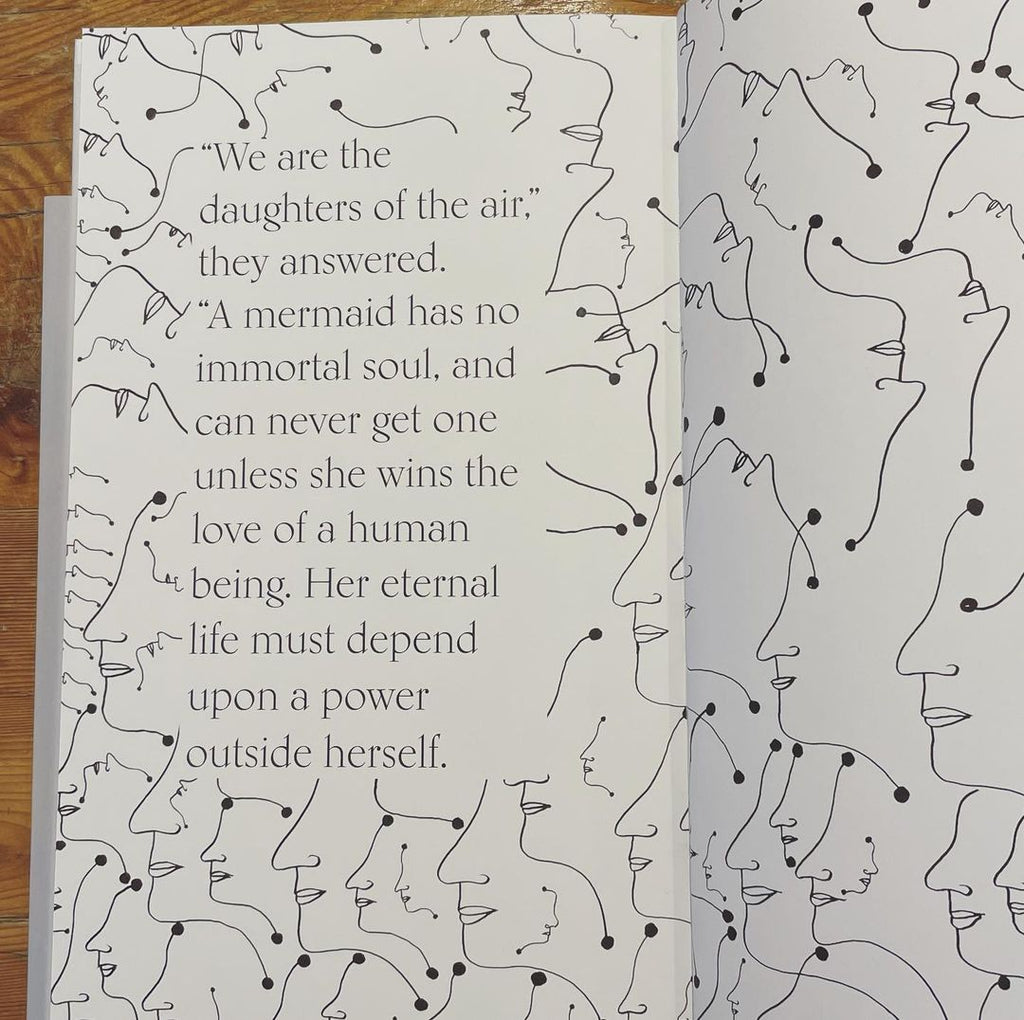 “We are the
daughters of the air,”
they answered.
“A mermaid has no
immortal soul, and
can never get one
unless she wins the
love of a human
being. Her eternal
life must depend
upon a power
outside herself.